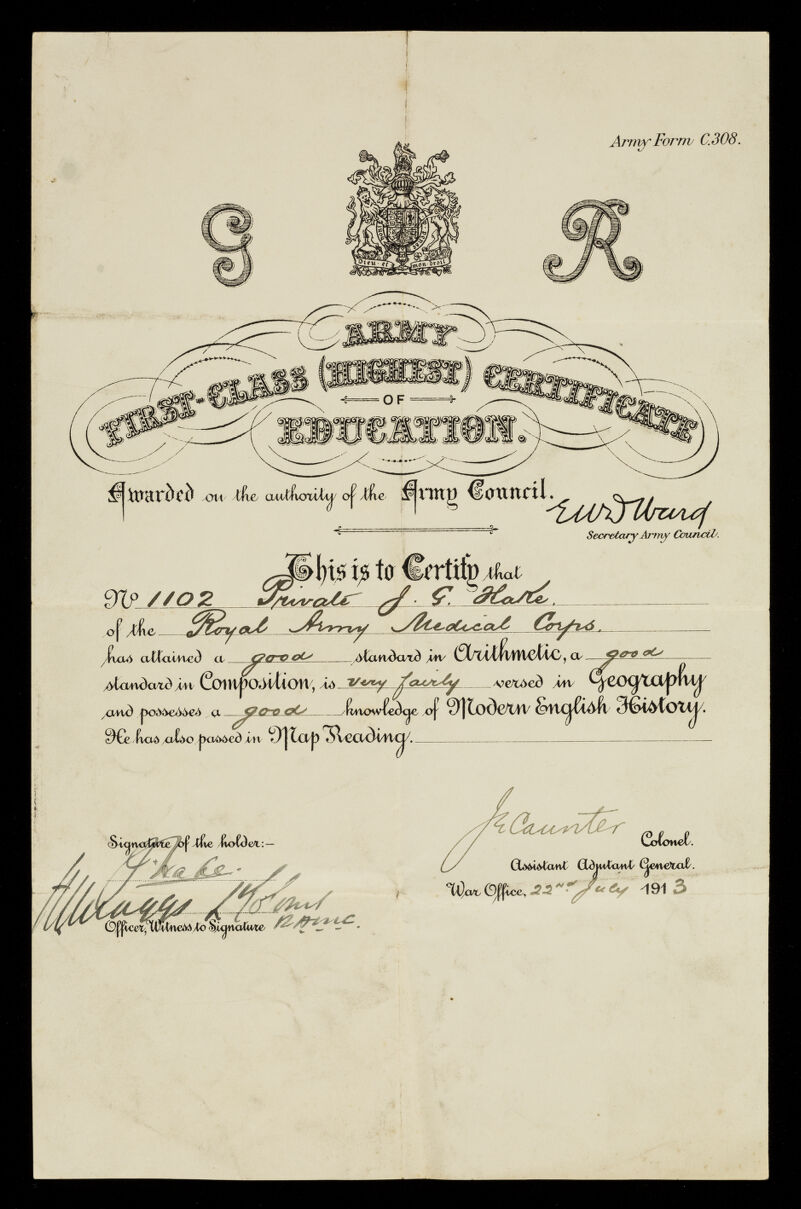 Army Form C.308.
G R
Dieu et mon droit
ARMY
FIRST-CLASS (HIGHEST) CERTIFICATE
OF
EDUCATION.
Awarded on the authority of the Army Council.
EWD Ward
Secretary Army Council.
This is to Certify that
No 1102 Private J. G. Hake.
of the Royal Army Medical Corps.
has attained a good standard in Arithmetic, a good
standard in Composition, is very fairly versed in Geography
and possesses a good knowledge of Modern English History.
He has also passed in Map Reading.
J E Caunter Colonel.
Assistant Adjutant General.
War Office, 22nd July 1913
Signature of the holder:-
J Hake.
Lt Col
R.A.M.C.
Officer, Witness to Signature